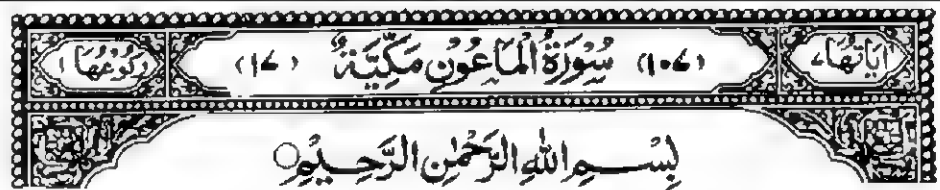 اٰيَاتُهَا ٧ (١٠٧) سُوْرَةُ الْمَاعُوْنِ مَكِّيَّةٌ (١٧) رُكُوْعُهَا ١
بِسْمِ اللهِ الرَّحْمٰنِ الرَّحِيْمِ